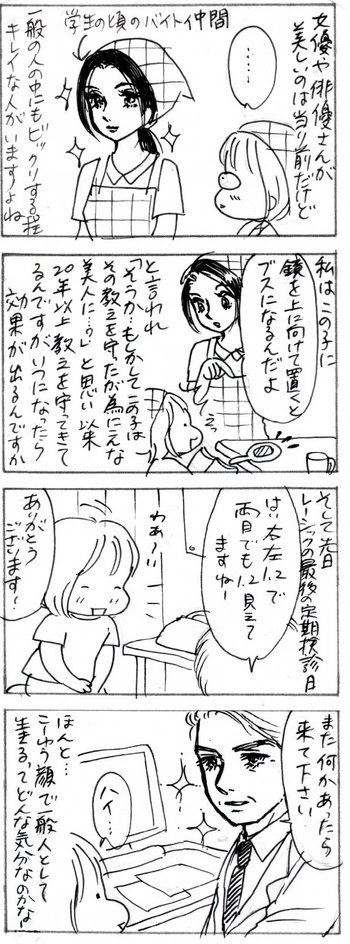 女優や俳優さんが
美しいのは当り前だけど
……
学生の頃のバイト仲間
一般の人の中にもビックリする程
キレイな人がいますよね
私はこの子に
鏡を上に向けて置くと
ブスになるんだよ
えっ
と言われ
「そうか…もしかしてこの子は
その教えを守ったが為にこんな
美人に…。」と思い以来
20年以上教えを守ってきて
るんですがいつになったら
効果が出るんですか
そして先日
レーシックの最後の定期検診日
はい右左1.2で
両目でも1.2見えて
ますねー
わあ〜い
ありがとう
ございます!
また何かあったら
来て下さい
ハイ…
ほんと…
こーゆう顔で一般人として
生きるってどんな気分なのかな